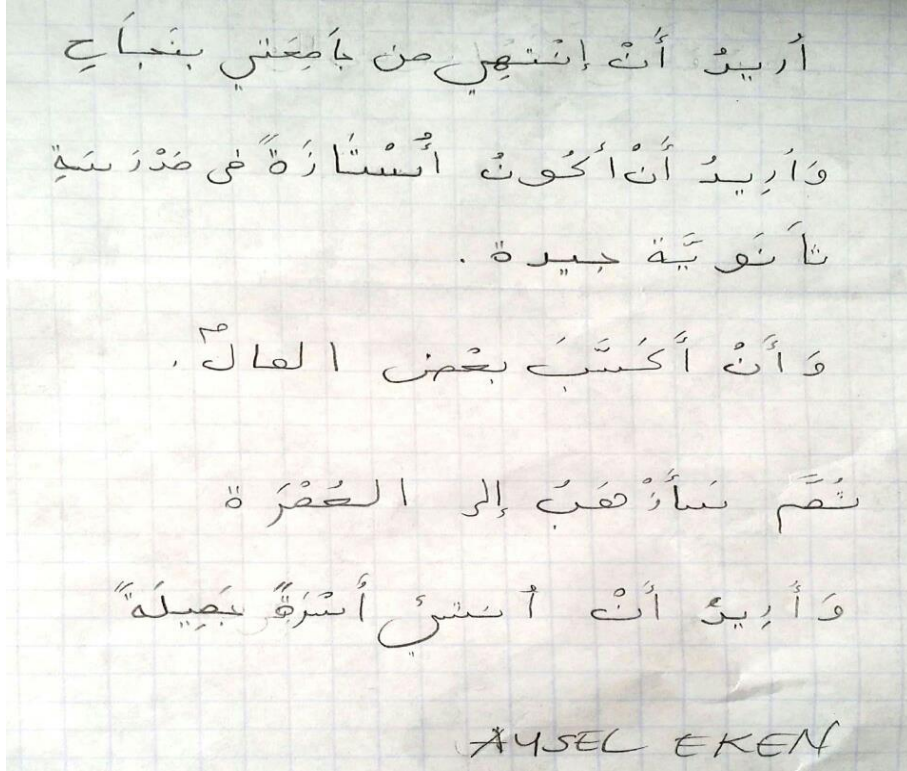 أُرِيدُ أَنْ إِنْتَهِي من جَامِعَتي بنَجَاحِ
وَأرِيدُ أَنْ أكُونُ أُسْتَازَةً فى مَدْرَسَةِ
ثَانَوِيَّة جيدة .
وَ أَنْ أَكَسَّبَ بعْض المالْ .
ثُمَّ سَأَذْهَبُ إلى العُمْرَة
وَ أُرِيدُ أَنْ أُنشئ أُسْرَةً جَمِيلَةً
AYSEL EKEN